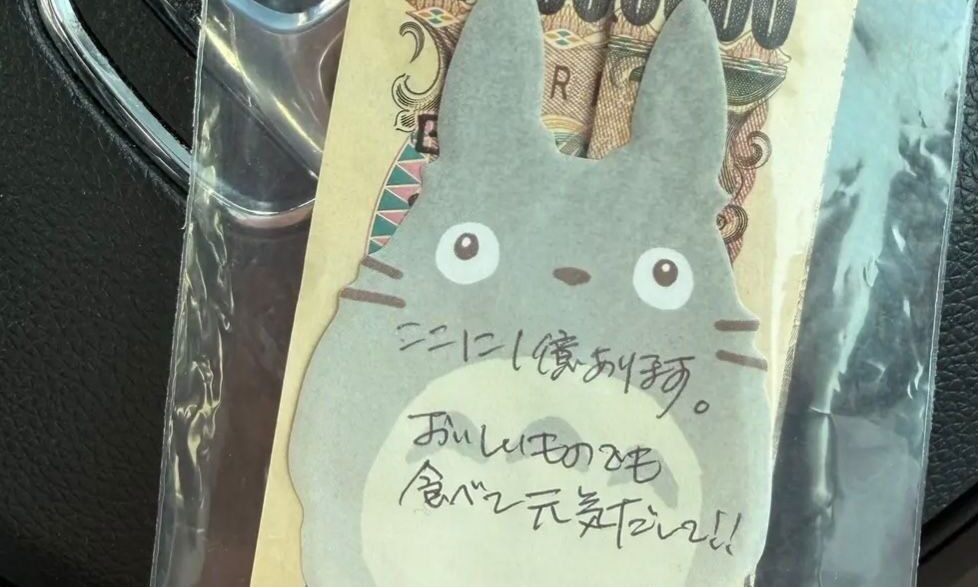 R
ここに1億あります。
おいしいものでも
食べて元気だして!!